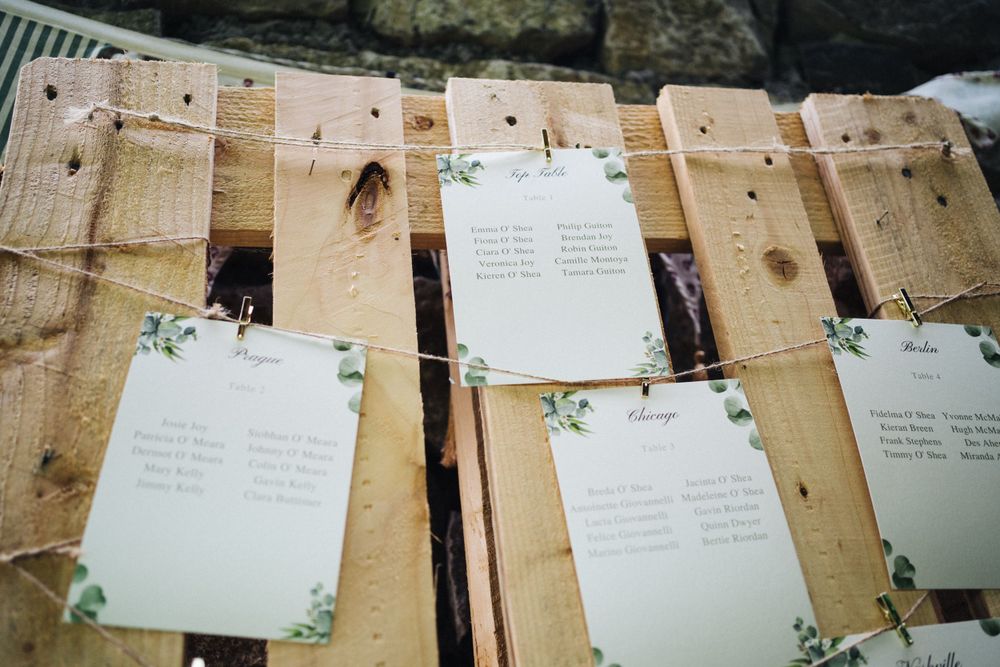 Top Table
Table 1
Emma O' Shea
Fiona O' Shea
Ciara O' Shea
Veronica Joy
Kieren O' Shea
Philip Guiton
Brendan Joy
Robin Guiton
Camille Montoya
Tamara Guiton
Prague
Table 2
Josie Joy
Patricia O' Meara
Dermot O' Meara
Mary Kelly
Jimmy Kelly
Siobhan O' Meara
Johnny O' Meara
Colin O' Meara
Gavin Kelly
Clara Buttimer
Chicago
Table 3
Breda O' Shea
Antoinette Giovannelli
Lucia Giovannelli
Felice Giovannelli
Marino Giovannelli
Jacinta O' Shea
Madeleine O' Shea
Gavin Riordan
Quinn Dwyer
Bertie Riordan
Berlin
Table 4
Fidelma O' Shea
Kieran Breen
Frank Stephens
Timmy O' Shea
Yvonne McM
Hugh McM
Des Ahe
Miranda A
Nashville